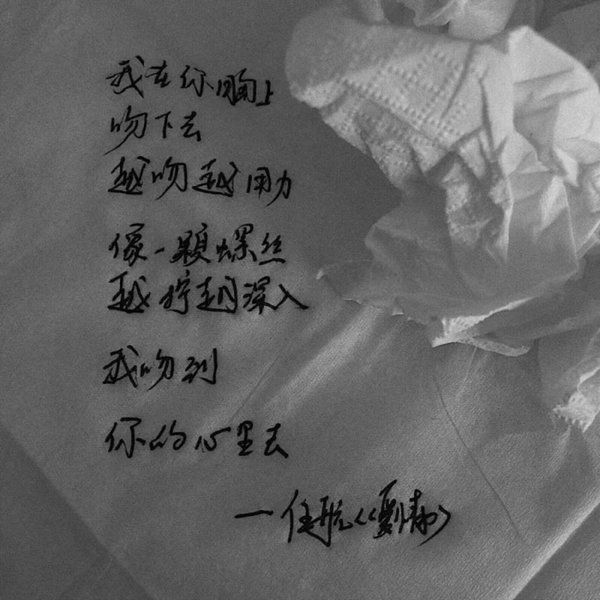 我在你胸上
吻下去
越吻越用力
像一颗螺丝
越拧越深入
我吻到
你的心里去
—任航